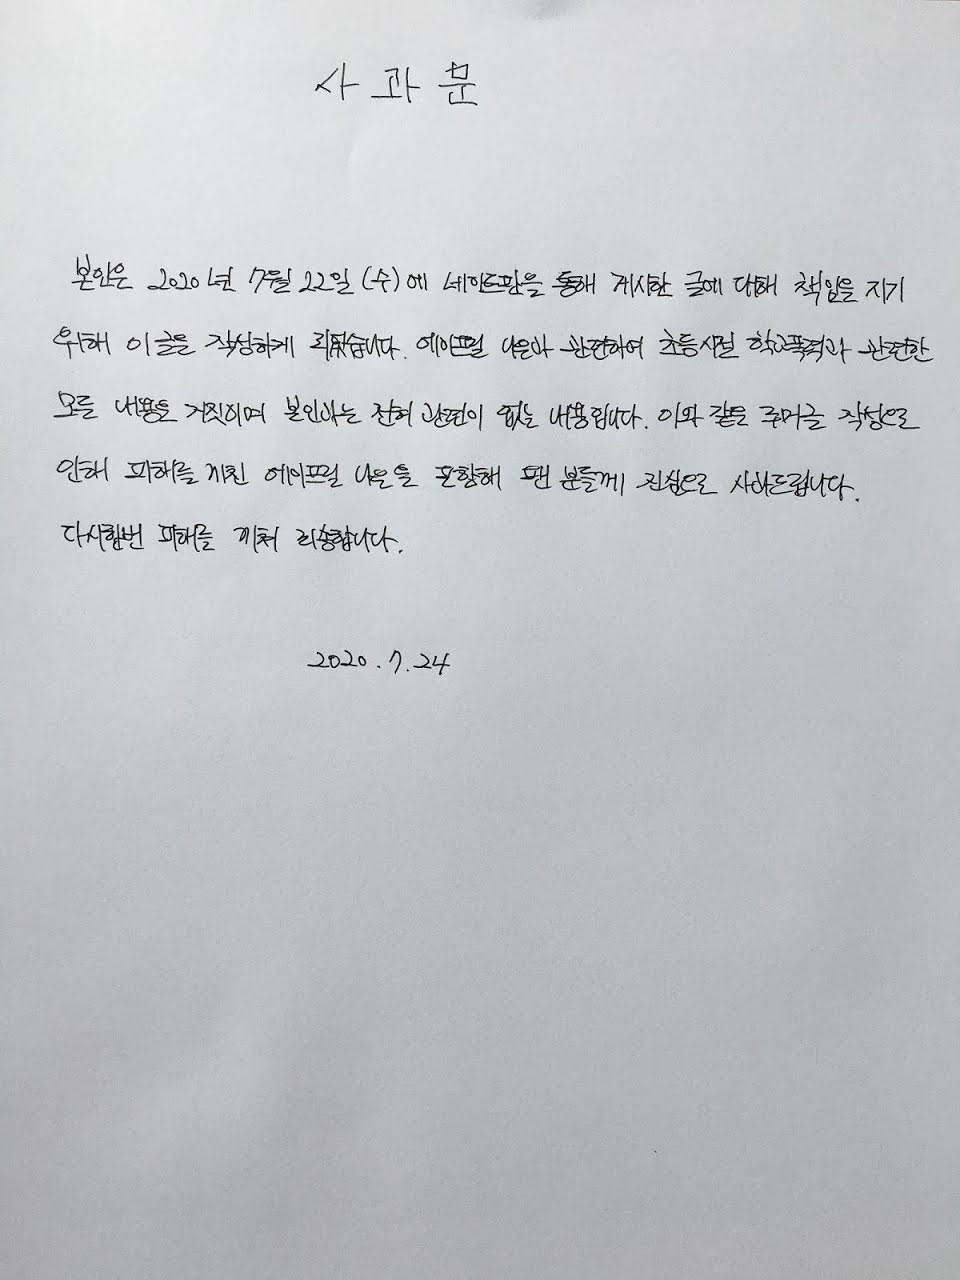 사과문
본인은 2020년 7월 22일 (수)에 네이트판을 통해 게시한 글에 대해 책임을 지기
위해 이 글을 작성하게 되었습니다. 에이프릴 나은과 관련하여 초등시절 학교폭력과 관련한
모든 내용은 거짓이며 본인과는 전혀 관련이 없는 내용입니다. 이와 같은 루머글 작성으로
인해 피해를 끼친 에이프릴 나은을 포함해 팬 분들께 진심으로 사과드립니다.
다시한번 피해를 끼쳐 죄송합니다.
2020.7.24